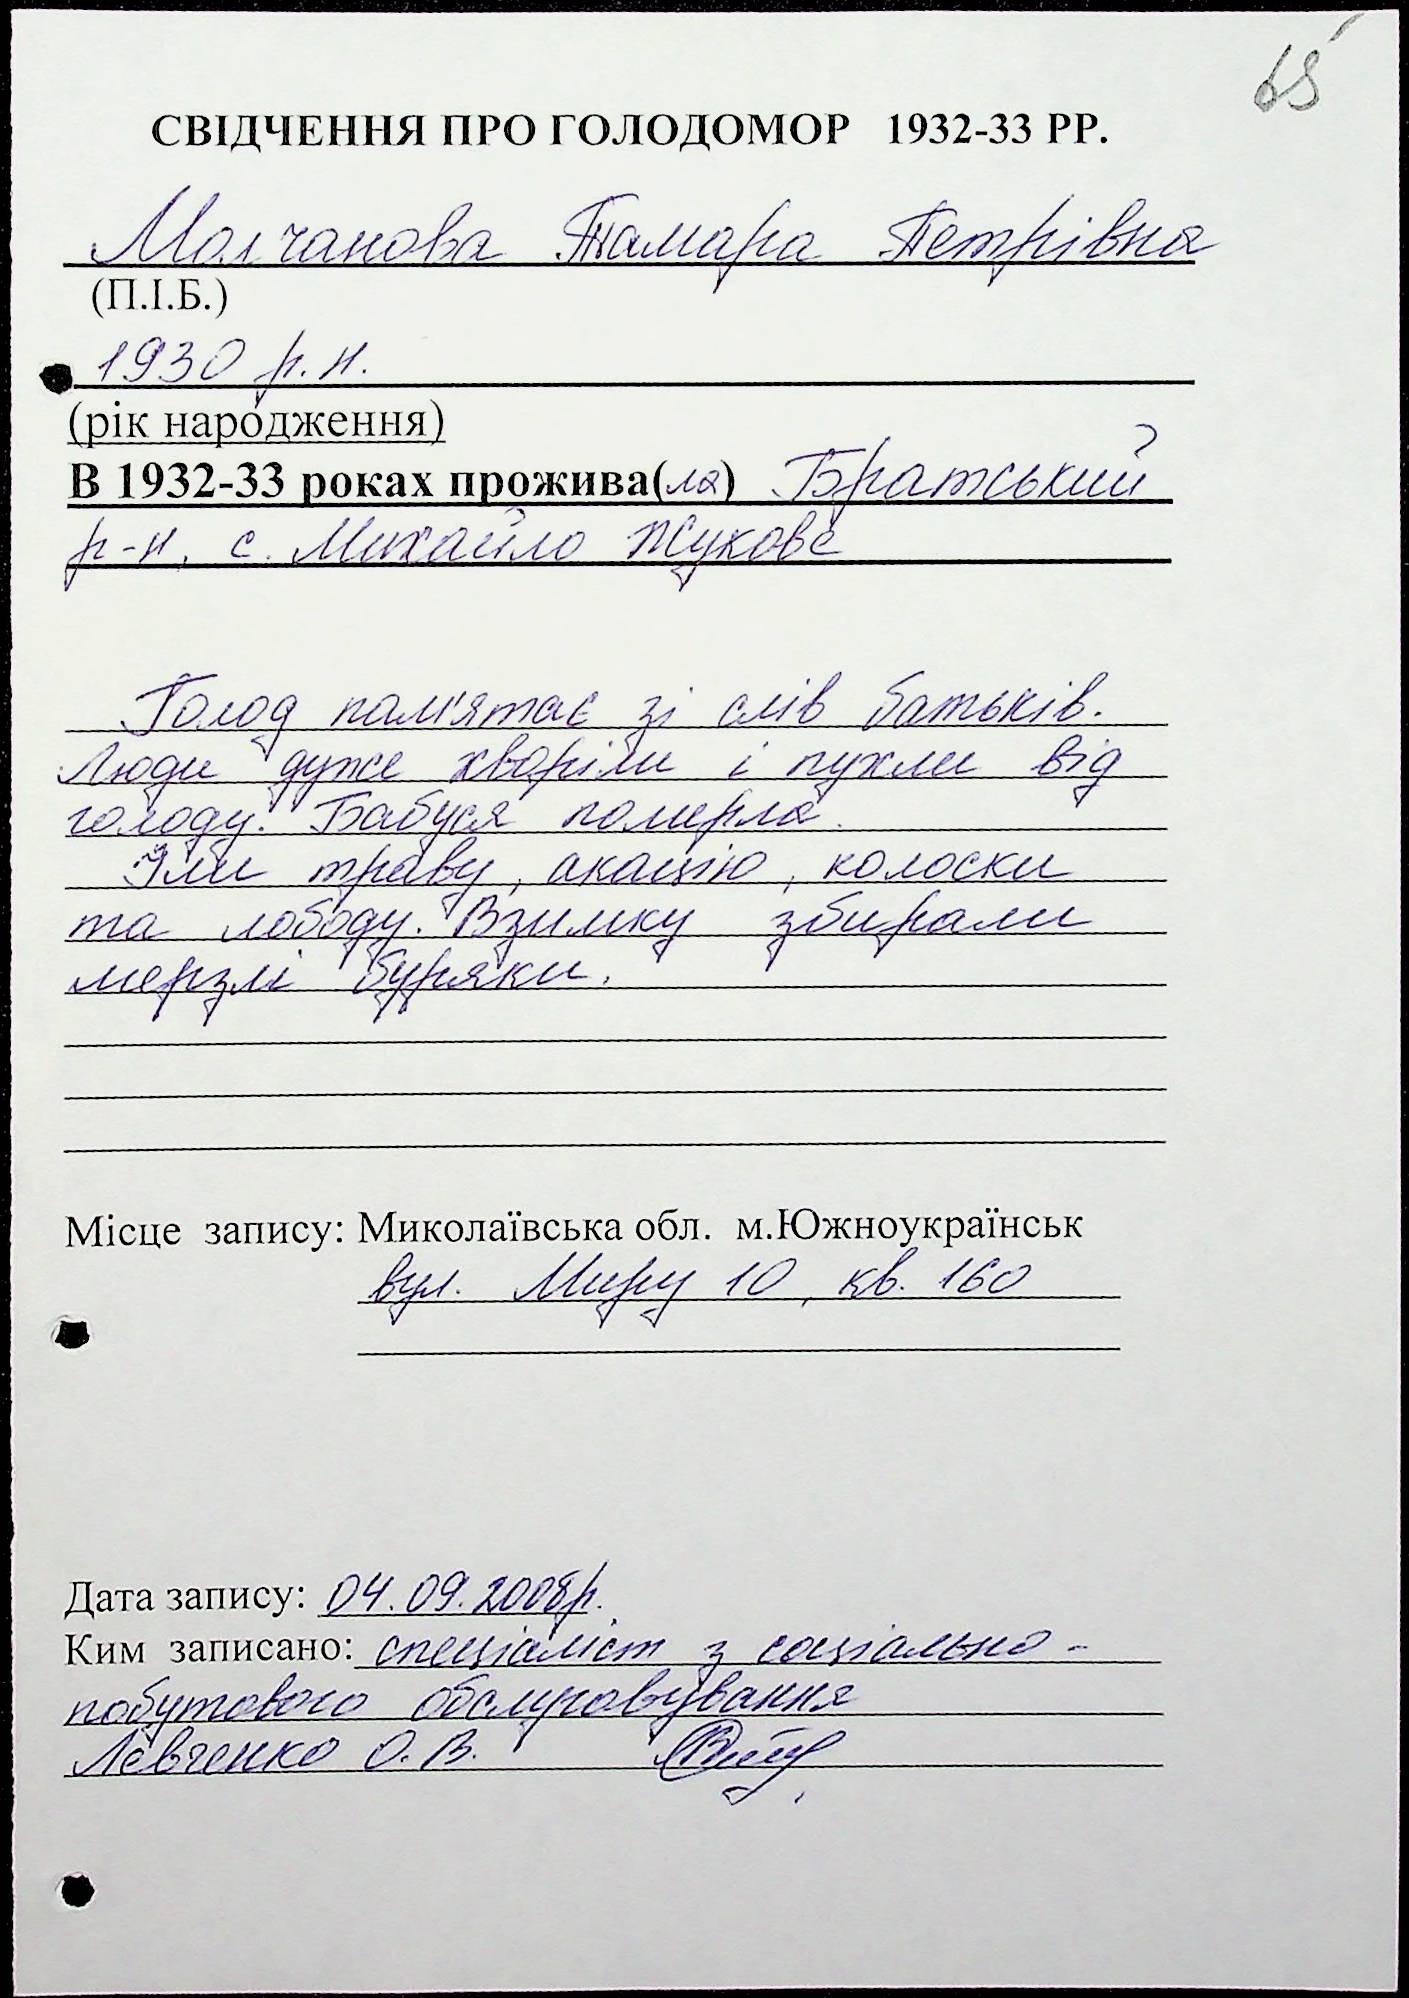 65
СВІДЧЕННЯ ПРО ГОЛОДОМОР 1932-33 РР.
Молчанова Тамара Петрівна
(П.І.Б.)
1930 р.н.
(рік народження)
В 1932-33 роках прожива(ла) Братський
р-н, с. Михайло Жукове
Голод пам'ятає зі слів батьків.
Люди дуже хворіли і пухли від
голоду. Бабуся померла.
Їли траву, акацію, колоски
та лободу. Взимку збирали
мерзлі буряки.
Місце запису: Миколаївська обл. м.Южноукраїнськ
вул. Миру 10, кв. 160
Дата запису: 04.09.2008р.
Ким записано: спеціаліст з соціально-
побутового обслуговування
Левченко О.В.